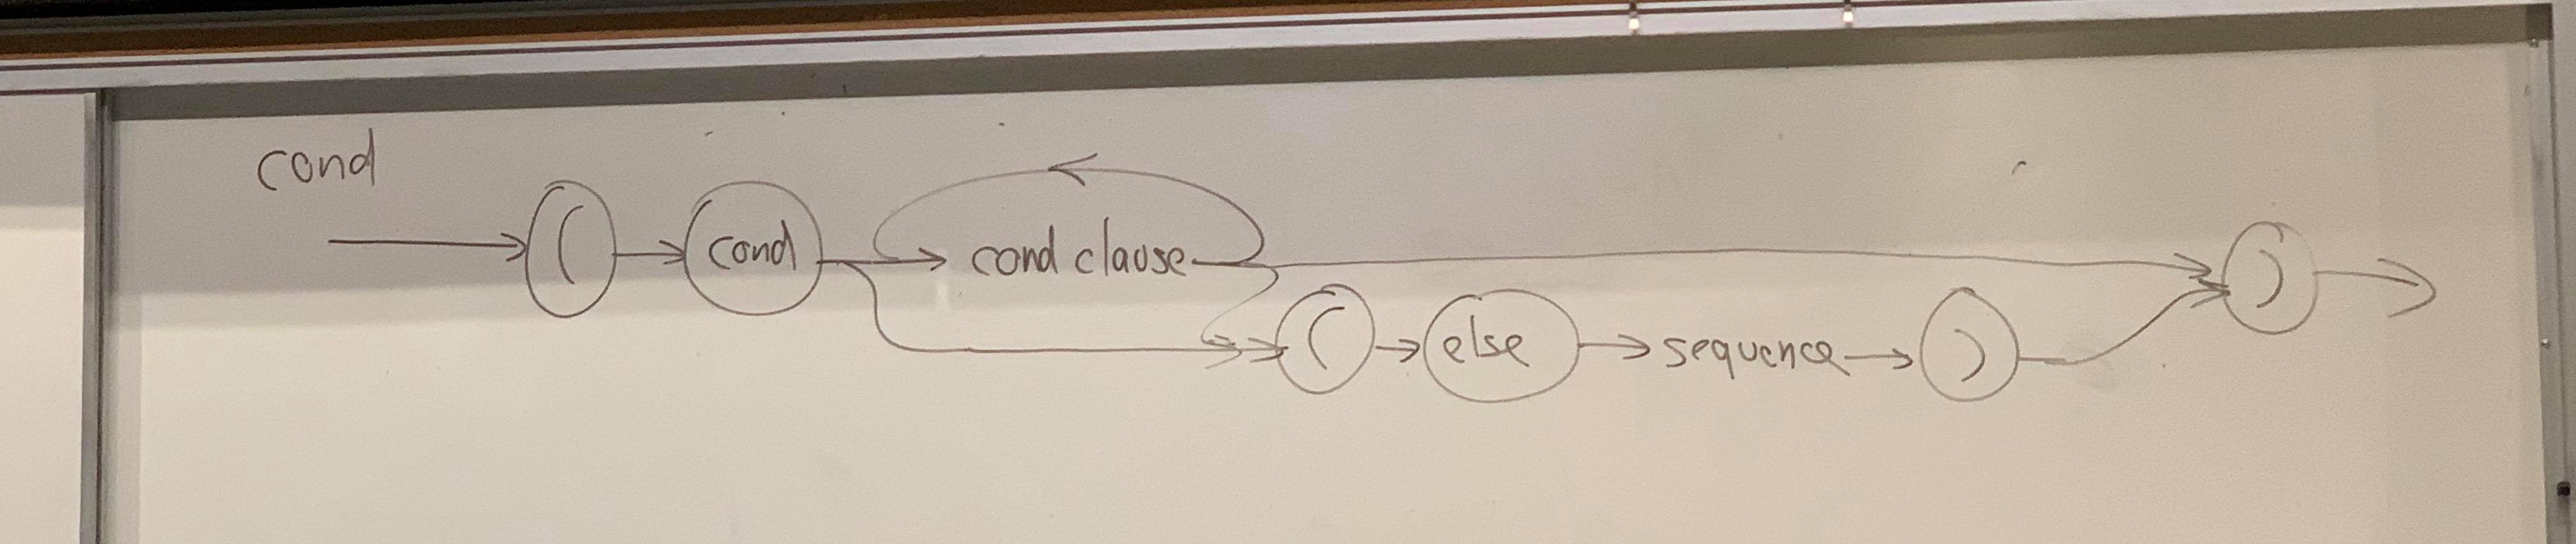 cond
( cond cond clause )
( else sequence )